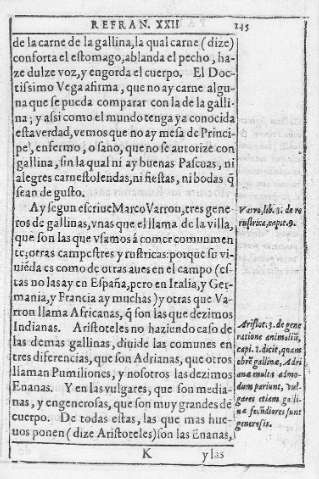 REFRAN. XXII 245
de la carne de la gallina, la qual carne (dize)
conforta el estomago, ablanda el pecho, ha-
ze dulze voz, y engorda el cuerpo. El Doc-
tissimo Vega afirma, que no ay carne algu-
na que se pueda comparar con la de la galli-
na; y assi como el mundo tenga ya conocida
esta verdad, vemos que no ay mesa de Princi-
pe, enfermo, o sano, que no se autorize con
gallina, sin la qual ni ay buenas Pascuas, ni
alegres carnestolendas, ni fiestas, ni bodas q̃
sean de gusto.
Ay segun escriue Marco Varron, tres gene
ros de gallinas, vnas que el llama de la villa,
que son las que vsamos a comer comunmen
te; otras campestres y rusticas: porque su vi-
uiẽda es como de otras aues en el campo (es-
tas no las ay en España, pero en Italia, y Ger-
mania, y Francia ay muchas) y otras que Va-
rron llama Africanas, q̃ son las que dezimos
Indianas. Aristoteles no haziendo caso de
las demas gallinas, diuide las comunes en
tres diferencias, que son Adrianas, que otros
llaman Pumiliones, y nosotros las dezimos
Enanas. Y en las vulgares, que son media-
nas, y engenerosas, que son muy grandes de
cuerpo. De todas estas, las que mas hue-
uos ponen (dize Aristoteles) son las Enanas,
K y las
Varro, lib. 3. de re
rustica, capit. 9.
Aristot. 3. de gene
ratione animaliũ,
capi. 1. dicit, quam
obrẽ gallinæ, Adri
anæ multa admo-
dum pariunt, vul-
gares etiam galli-
næ fœcũdiores sunt
generosis.